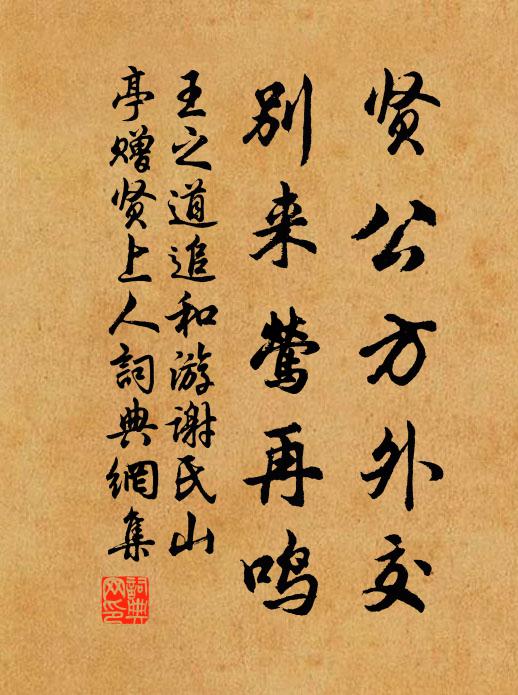 贤公方外交
别来莺再鸣
王之道追和游谢氏山
亭赠贤上人詞典網集
詞典网印